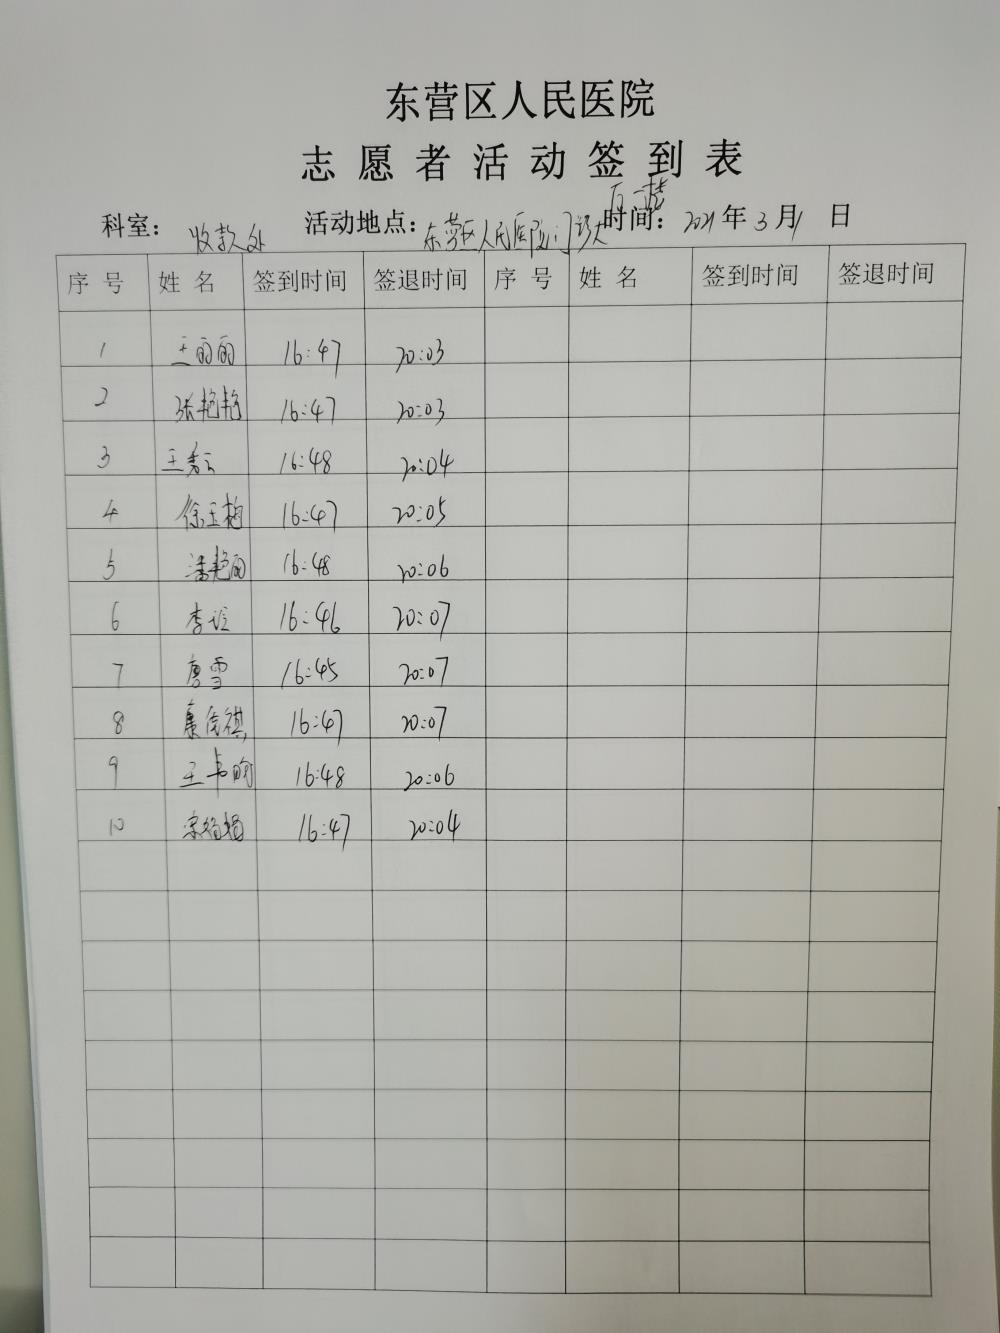 东营区人民医院
志愿者活动签到表
科室: 收款处 活动地点: 东营区人民医院门诊大厅一楼 时间: 2021年3月11日
序号 姓名 签到时间 签退时间 序号 姓名 签到时间 签退时间
1 王丽丽 16:47 20:03
2 张艳艳 16:47 20:03
3 王秀云 16:48 20:04
4 徐玉梅 16:47 20:05
5 潘艳丽 16:48 20:06
6 李 16:46 20:07
7 唐雪 16:45 20:07
8 康 祺 16:47 20:07
9 王 16:48 20:06
10 宋娟娟 16:47 20:04